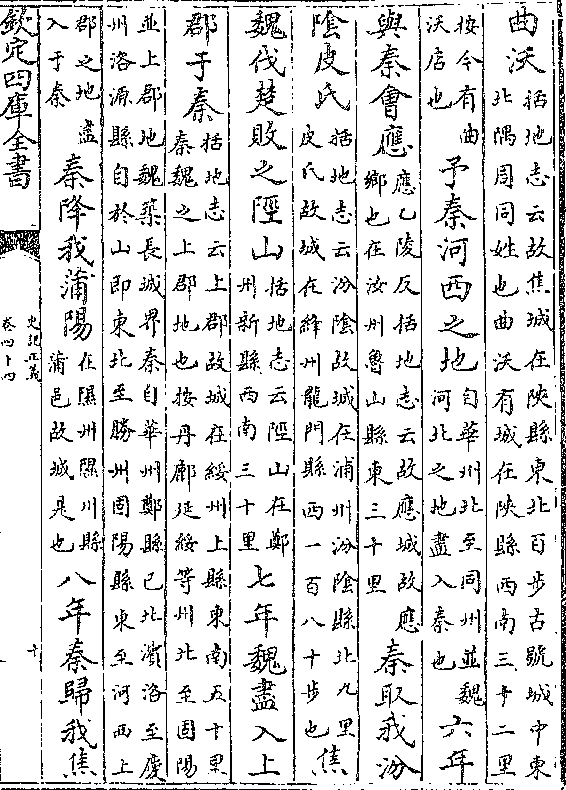 曲沃括地志云故焦城在陝縣東北百步古虢城中東北隅周同姓也曲沃有城在陝縣西南三十二里
按今有曲沃店也予秦河西之地自華州北至同州並魏河北之地盡入秦也六年
與秦會應應乙陵反括地志云故應城故應鄉也在汝州魯山縣東三十里秦取我汾
陰皮氏括地志云汾陰故城在浦州汾陰縣北九里皮氏故城在絳州龍門縣西一百八十步也焦
魏伐楚敗之陘山括地志云陘山在鄭州新縣西南三十里七年魏盡入上
郡于秦括地志云上郡故城在綏州上縣東南五十里秦魏之上郡地也按丹鄜延綏等州北至固陽
並上郡地魏築長城界秦自華州鄭縣已北濱洛至慶州洛源縣白於山即東北至勝州固陽縣東至河西上
郡之地盡入于秦秦降我蒲陽在隰州隰川縣蒲邑故城是也八年秦歸我焦
欽定四庫全書
史記正義
卷四十四
十